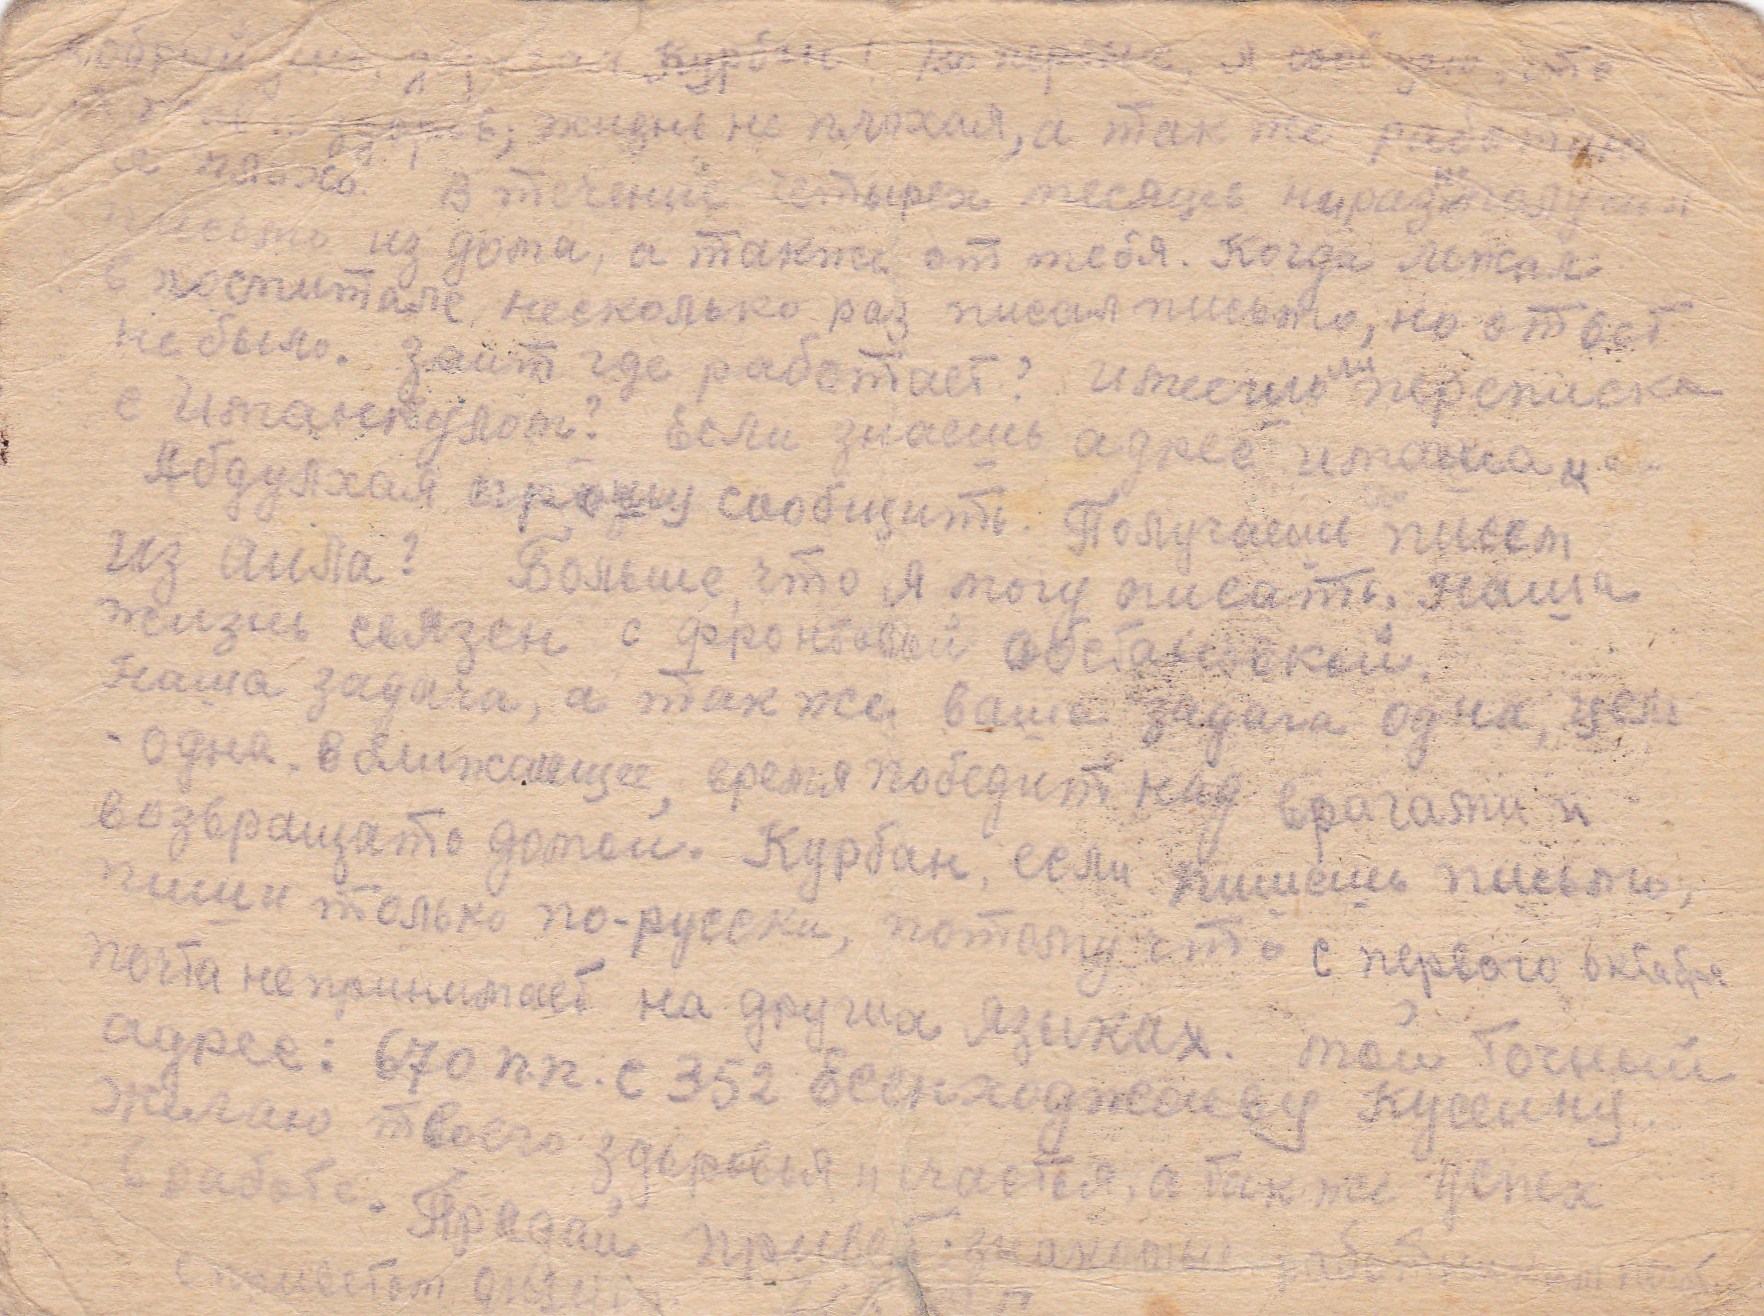 Добрый день, дорогой Курбан! Во первых, я сообщаю, что
я жив и здоров, жизнь не плохая, а так же работаю
не плохо. В течение четырех месяцев ни раз не получил
письмо из дома, а также от тебя. Когда лежал
в хоспитале, несколько раз писал письмо, но ответ
не было. Заит где работает? Имеешь ли переписка
с Иманкулом? Если знаешь адрес имама и
Абдулхая прошу сообщить. Получаешь писем
из аила? Больше, что я могу писать. Наша
жизнь связен с фронтовой обстановкой.
Наша задача, а так же ваша задача одна, цель
- одна. в ближающее, время победить над врагами и
возвращать домой. Курбан, если пишешь письмо,
пиши только по-русски, потому что с первого октября
почта не принимает на других языках. мой точный
адрес: 670 п.п. с 352 Есенходжаеву Кусеину.
Желаю твоего здоровья и счастья, а так же успех
в работе. Прадай привет знакомым
с приветом